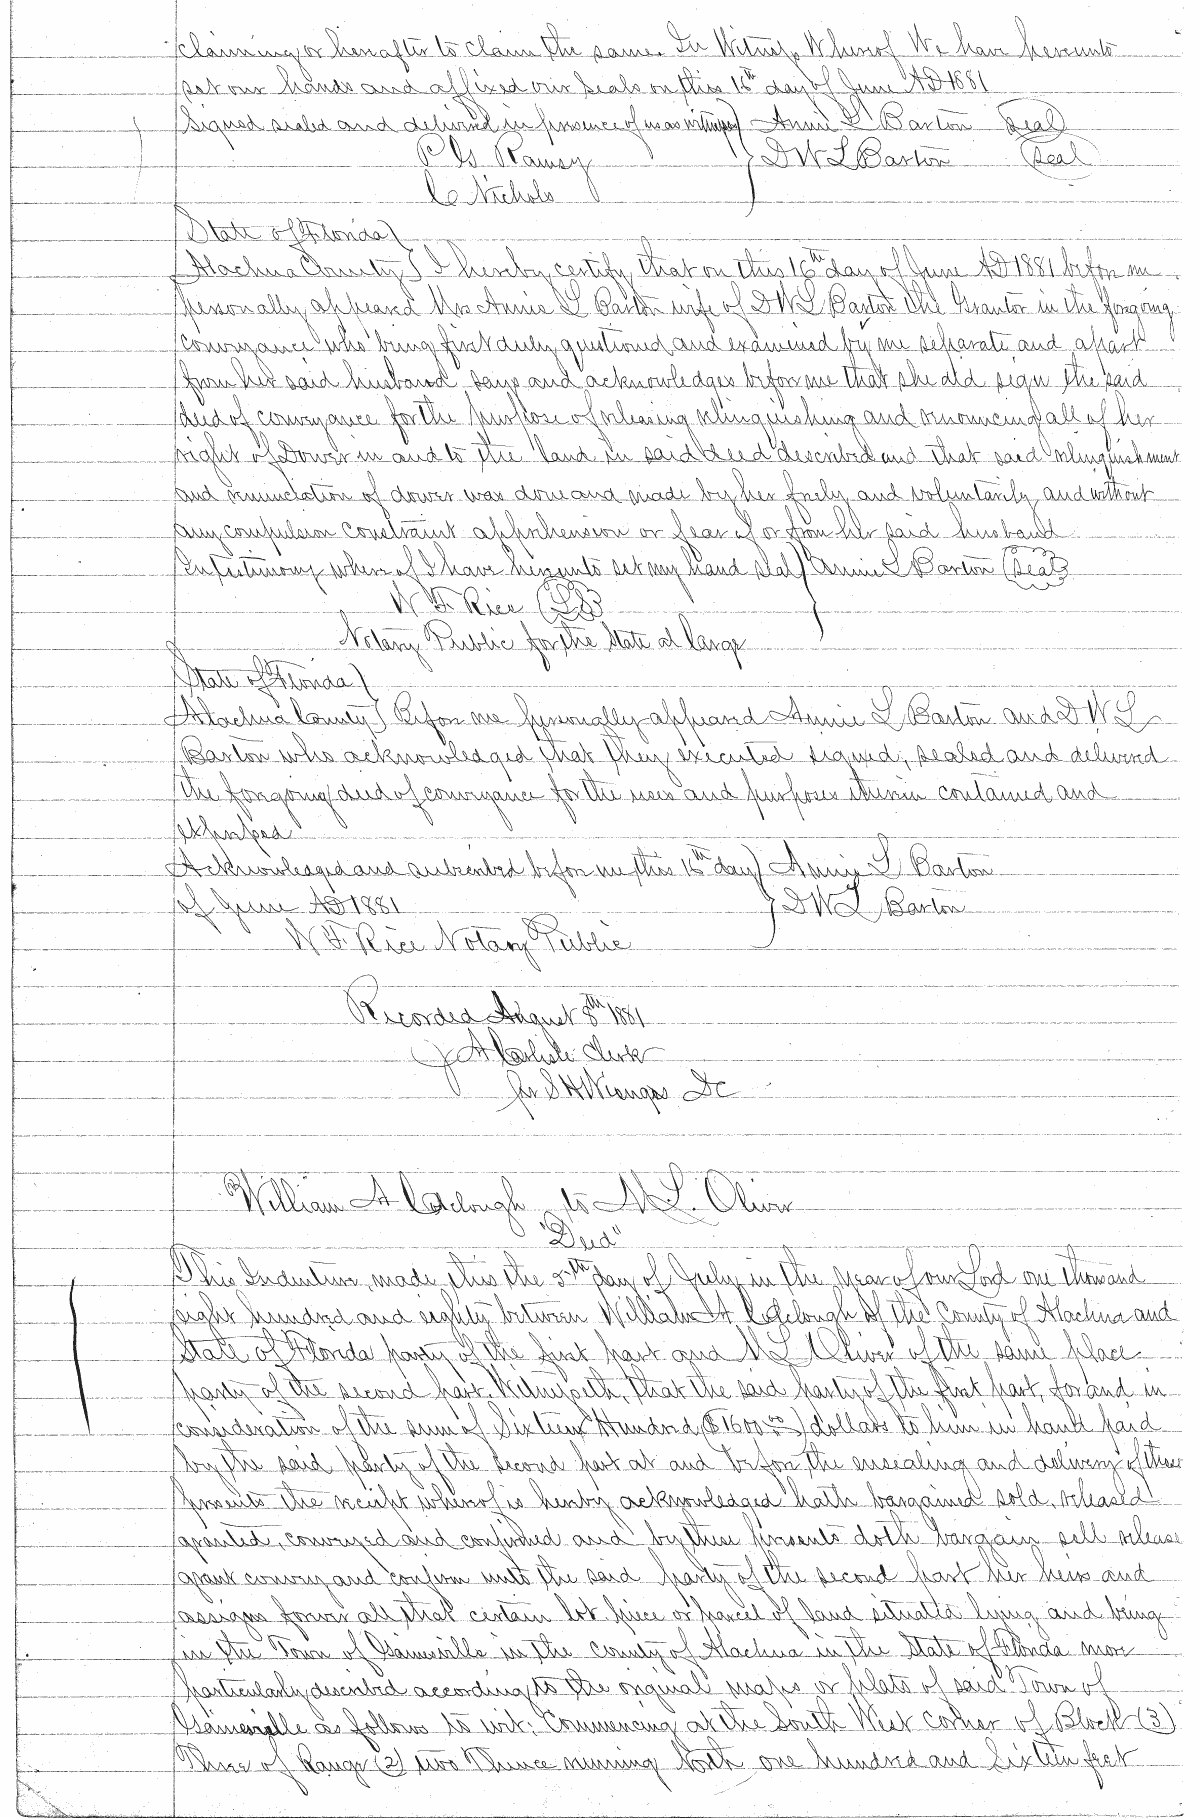 claiming or hereafter to claim the same. In Witness Whereof We have hereunto
set our hands and affixed our seals on this 16th day of June AD 1881
Signed sealed and delivered in presence of us as witnesses) Annie L Barton Seal
P G Ramsy } D W L Barton Seal
C Nichols
State of Florida)
Alachua County) I hereby certify that on this 16th day of June AD 1881 before me
personally appeared Mrs Annie L Barton wife of D W L Barton the Grantor in the forgoing
conveyance who being first duly questioned and examined by me separate and apart
from her said husband says and acknowledges before me that she did sign the said
deed of conveyance for the purpose of releasing relinquishing and renouncing all of her
right of Dower in and to the land in said deed described and that said relinquishment
and renunciation of dower was done and made by her freely and voluntarily and without
any compulsion constraint apprehension or fear of or from her said husband
In testimony where of I have hereunto set my hand seal) Annie L Barton (Seal)
W F Rice (LS)
Notary Public for the State at large
State of Florida)
Alachua County) Before me personally appeared Annie L Barton and D W L
Barton who acknowledged that they executed signed, sealed and delivered
the forgoing deed of conveyance for the uses and purposes therein contained and
expressed
Acknowledged and subscribed before me this 16th day) Annie L Barton
of June AD 1881 } D W L Barton
W F Rice Notary Public
Recorded August 8th 1881
J A Carlisle Clerk
per S H DC
William A to M L. Oliver
"Deed"
This Indenture, made this the 5th day of July in the year of our Lord one thousand
eight hundred and eighty between William A of the County of Alachua and
State of Florida party of the first part and M L Oliver of the same place
party of the second part. Witnesseth, that the said party of the first part, for and in
consideration of the sum of Sixteen Hundred ($1600.00) dollars to him in hand paid
by the said party of the second part at and before the ensealing and delivery of these
presents the receipt whereof is hereby acknowledged hath bargained sold, released
granted, conveyed and confirmed and by these presents doth bargain sell release
grant convey and confirm unto the said party of the second part her heirs and
assigns forever all that certain lot piece or parcel of land situated lying and being
in the Town of Gainesville in the County of Alachua in the State of Florida more
particularly described according to the original maps or plats of said Town of
Gainesville as follows to wit: Commencing at the South West corner of Block (3)
Three of Range (2) two Thence running North one hundred and Sixteen feet